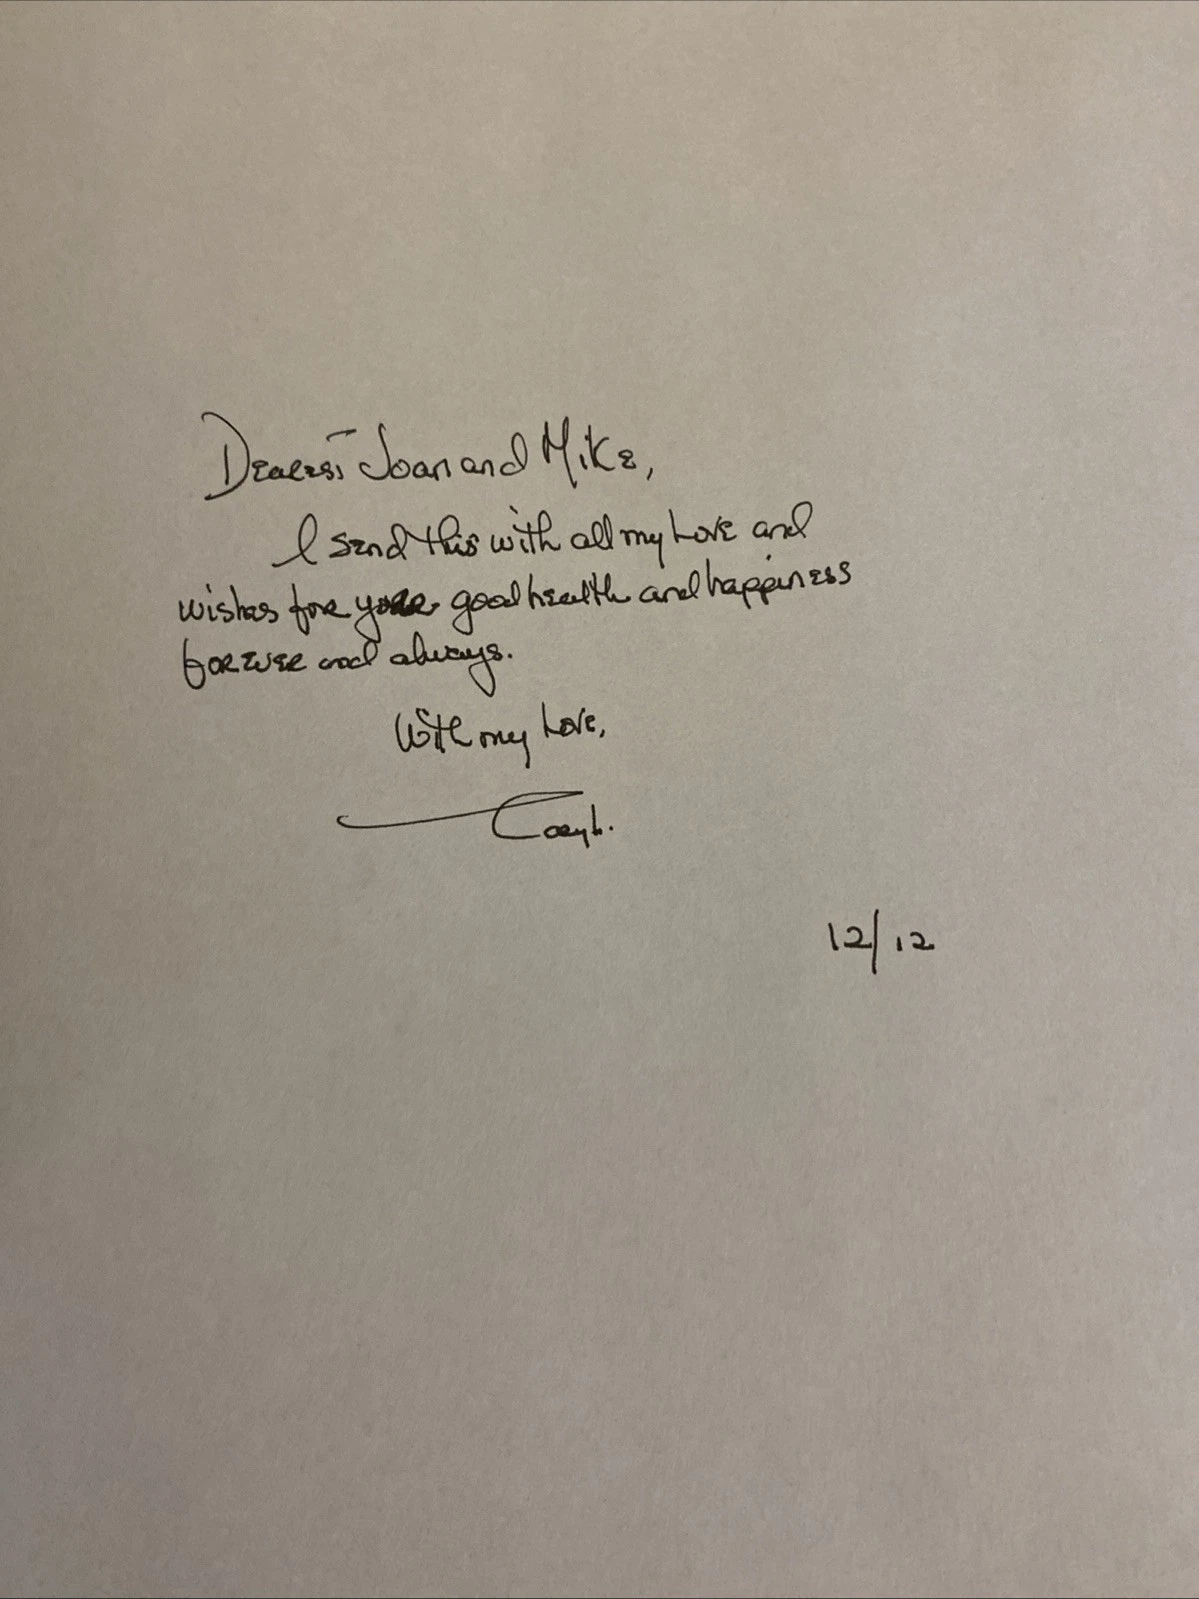 Dearest Joan and Mike,
I send this with all my Love and
wishes for your good health and happiness
forever and always.
With my Love,
Caryl.
12/12